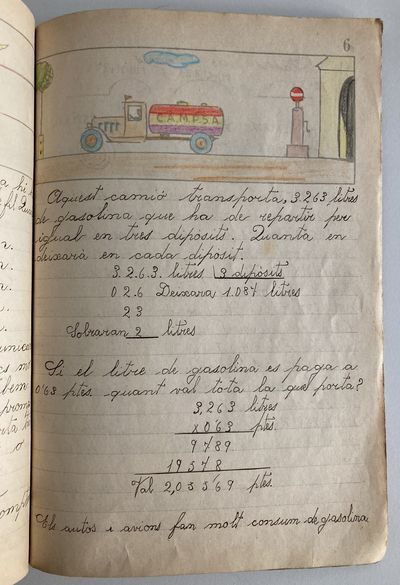 6
C.A.M.P.S.A.
Aquest camió transporta, 3.263 litres
de gasolina que ha de repartir per
igual en tres dipòsits. Quanta en
deixarà en cada dipòsit.
3.2.6.3. litres 3 dipòsits
0 2.6 Deixara 1.087 litres
23
Sobraran 2 litres
Si el litre de gasolina es paga a
0'63 ptes. quant val tota la que porta?
3,263 litres
x 0,63 ptes.
9789
19578
Val 2,055'69 ptes.
Els autos i avions fan molt consum de gasolina.